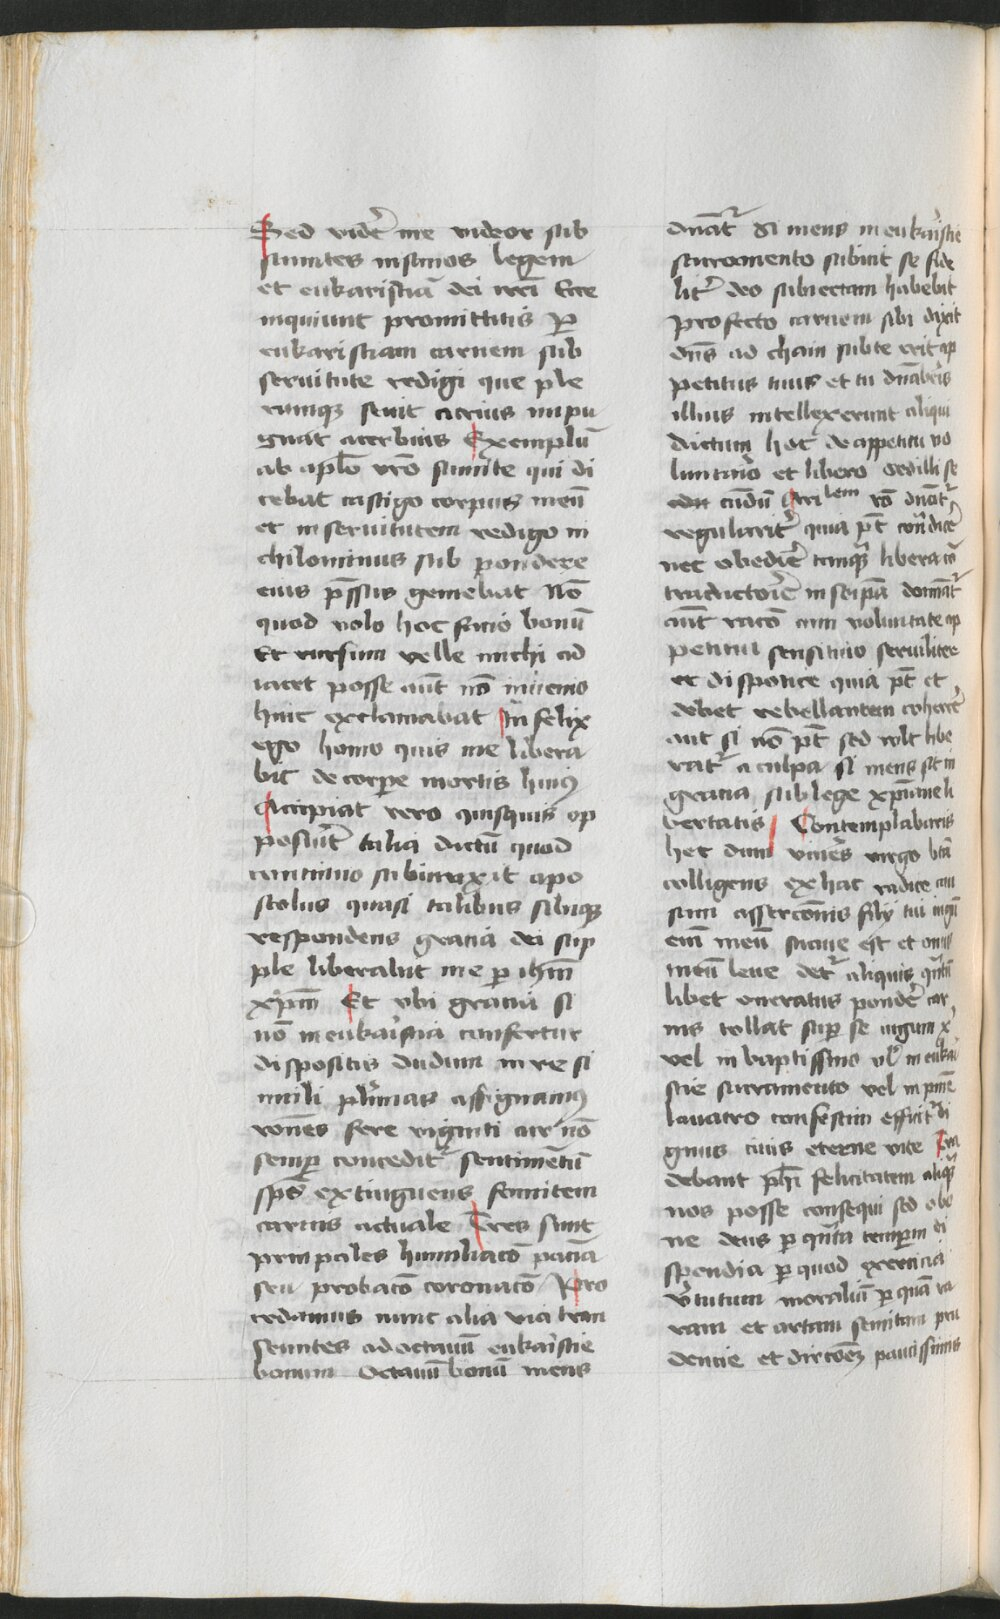 Sed vidēr me videor sub
sannites insanos legem
et eukaristiā dei nr̄i Ecce
inquiunt promittitis per
eukaristiam carnem sub
servitute redigi que ple
rumqꝫ sevit acrius impu
gnat acerbius Exemplū
ab aplō vrō sumite qui di
cebat castigo corpus meū
et in servitutem redigo ni
chilominus sub pondere
eius p̄ssus gemebat Nō
quod volo hoc facio bonū
Et rursum velle michi ad
iacet posse aūt nō invenio
hinc exclamabat Infelix
ego homo quis me libera
bit de corpore mortis huiꝰ
Accipiat vero quisquis op
posuer̄t talia dictū quod
continuo subiunxit apo
stolus quasi talibus sibiqꝫ
respondens gracia dei sup
ple liberabit me per ihm̄
xp̄m Et ubi gracia si
nō in eukaristia confertur
dispositis dudum in re si
mili plurimas assignamꝰ
rōnes fere viginti cur nō
semper conceditr̄ sentimentū
sps̄ extinguens fomitem
carnis actuale Tres sunt
principales humiliacō paciā
seu probacō coronacō Pro
cedamus nunc alia via tran
seuntes ad octavū eukaristie
bonum Octavū bonū mens
dn̄atr̄ Si mens in eukaristie
sacramento subiit se fide
litr̄ deo subiectam habebit
profecto carnem sibi dixit
dn̄s ad chain subte erit ap
petitus tuus et tu dn̄aberis
illius intellexerunt aliqui
dictum hoc de appetitu vo
luntario et libero sed illi se
cundū Aristotilem rō dn̄atr̄
regularitr̄ quia pt̄ contradicēr
nec obedir̄e tamqꝫ libera cō
traductorē in seipā dominatr̄
aūt racō cum voluntate ap
petitui sensitivo serviliter
et dispotice quia pt̄ et
debet rebellantem cohercēr
aut si nō pt̄ sed vult libe
ratr̄ a culpa si mens sit in
gracia sub lege xp̄iane li
bertatis Contemplabaris
hec dum viveres virgo btā
colligens ex hac radice cau
sam assercōnis filij tui iugū
em̄ meū suave est et onus
meū leve detr̄ aliquis quantū
libet oneratus pondēr car
nis tollat super se iugum xp̄i
vel in baptissmo vel in eukari
stie sacramento vel in pnīe
lavacro confestim efficitr̄ di
gnus civis eterne vite Cre
debant ph̄i felicitatem aliqꝫ
nos posse consequi sed o bo
ne deus per quanta temporum di
spendia per quod exercicia
virtutum moraliū per quam ra
ram et artam semitam pru
dencie et direcōēꝫ paucissimis